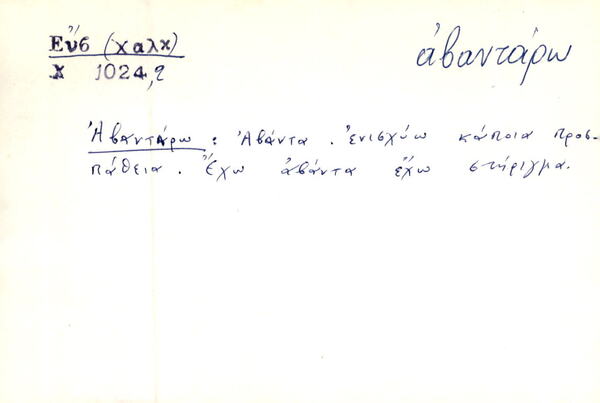 Εὔβ (χαλκ)
ἀβαντάρω
χ 1024,2
Ἀβαντάρω : Ἀβάντα. Ἐνισχύω κάποια προσ-
πάθεια. Ἔχω ἀβάντα ἔχω στήριγμα.